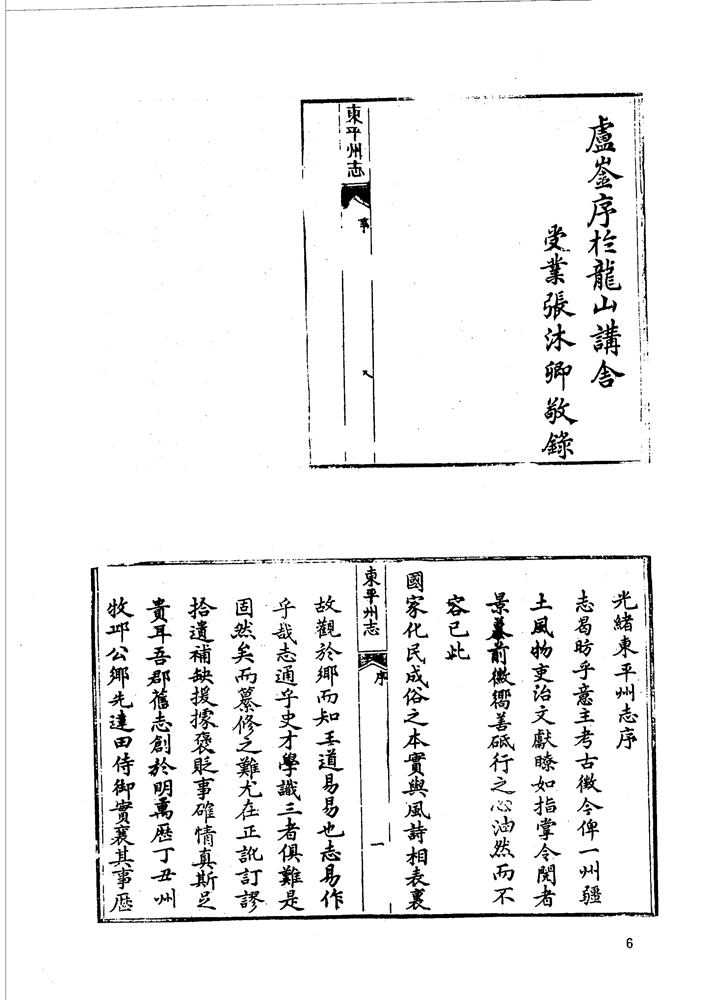 盧崟序於龍山講舍
受業張沐卿敬錄
東平州志
序
八
光緒東平州志序
志曷昉乎意主考古徵今俾一州疆
土風物吏治文獻瞭如指掌令閱者
景慕前徽嚮善砥行之心油然而不
容已此
國家化民成俗之本實與風詩相表裏
東平州志
序
一
故觀於鄉而知王道易易也志易作
乎哉志通乎史才學識三者俱難是
固然矣而纂修之難尤在正訛訂謬
拾遺補缺援據褒貶事確情真斯足
貴耳吾郡舊志創於明萬歷丁丑州
牧邛公鄉先達田侍御實襄其事歷
6